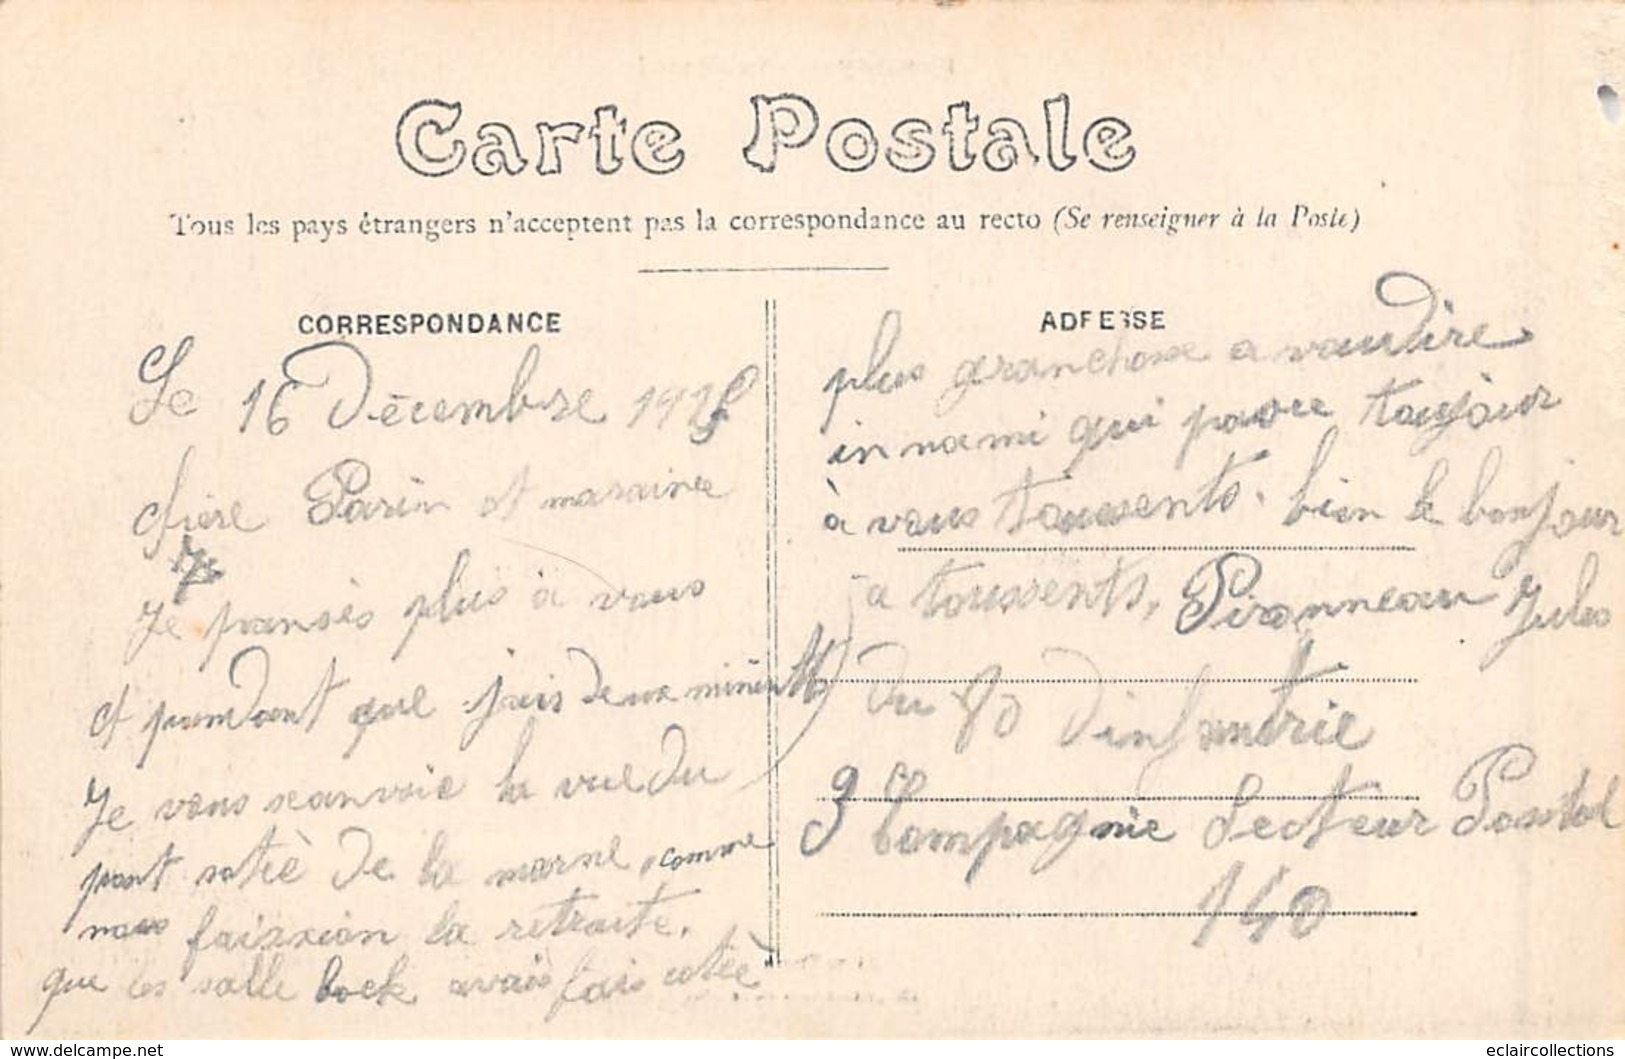 Carte Postale
Tous les pays étrangers n'acceptent pas la correspondance au recto (Se renseigner à la Poste)
CORRESPONDANCE
Le 16 Décembre 191
chere Parin et marainee
Je
Je pansés plus à vous
et pandant que jais deux minentts
Je vous ranvoie la vue du
pont sotéè de la marne, comme
nous faisxion la retraite,
que ces salle bock avais fais sotéè
ADRESSE
plus granchose a vaudire
in nami qui panse toujour
à vous toussents. bien le bonjour
a toussents, Piranneau Jules
du 90 Dinfantrie
9e Compagnie Secteur Postal
140
delcampe.net
eclaircollections